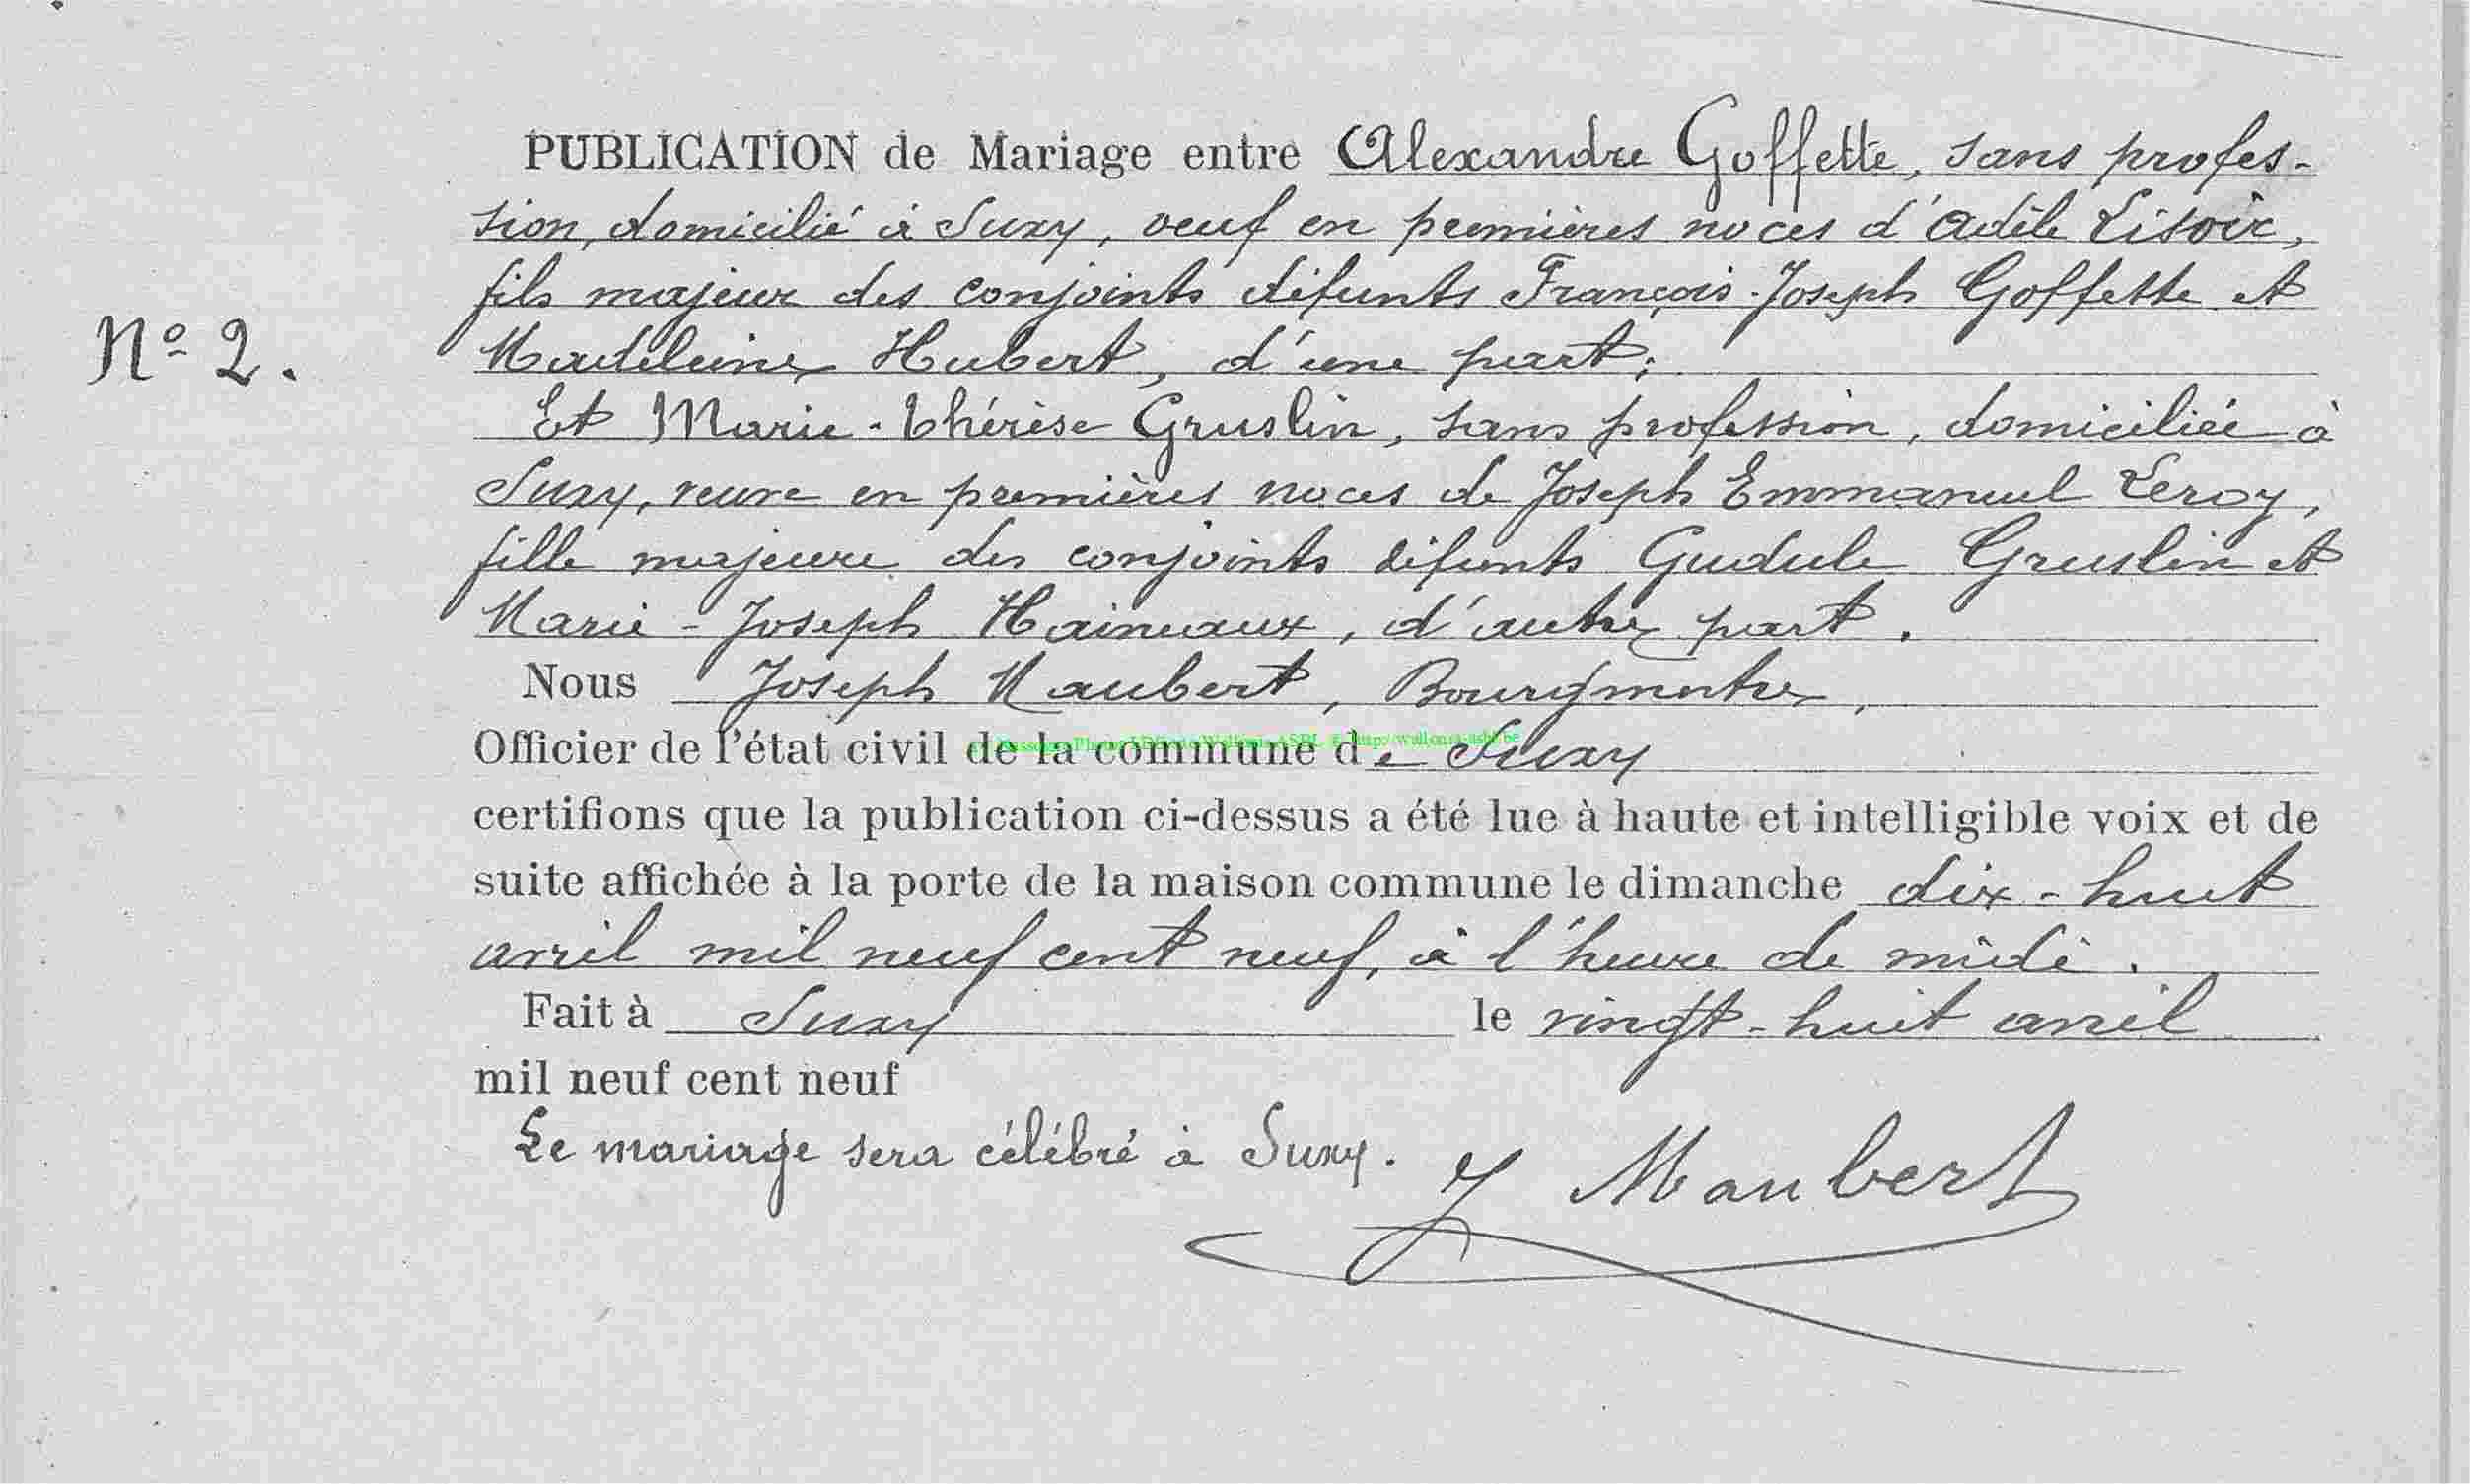 PUBLICATION de Mariage entre Alexandre Goffette, sans profes-
sion, domicilié à Suxy, veuf en premières noces d'Adèle Lisoir,
fils majeur des conjoints défunts François-Joseph Goffette et
N° 2.
Madeleine Hubert, d'une part;
Et Marie-Thérèse Gruslin, sans profession, domiciliée à
Suxy, veuve en premières noces de Joseph Emmanuel Leroy,
fille majeure des conjoints défunts Gudule Gruslin et
Marie-Joseph Haineaux, d'autre part.
Nous Joseph Maubert, Bourgmestre,
Officier de l'état civil de la commune de Suxy
certifions que la publication ci-dessus a été lue à haute et intelligible voix et de
suite affichée à la porte de la maison commune le dimanche dix-huit
avril mil neuf cent neuf, à l'heure de midi.
Fait à Suxy le vingt-huit avril
mil neuf cent neuf
Le mariage sera célébré à Suxy.
J Maubert